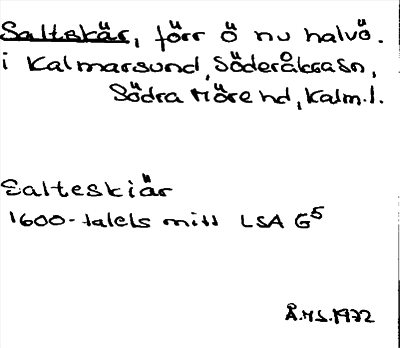 Saltskär, förr ö nu halvö.
i Kalmarsund, Söderåkra sn,
Södra Möre hd, Kalm.l.
Salteskiär
1600-talets mitt LSA G5
Å.H.S. 1972